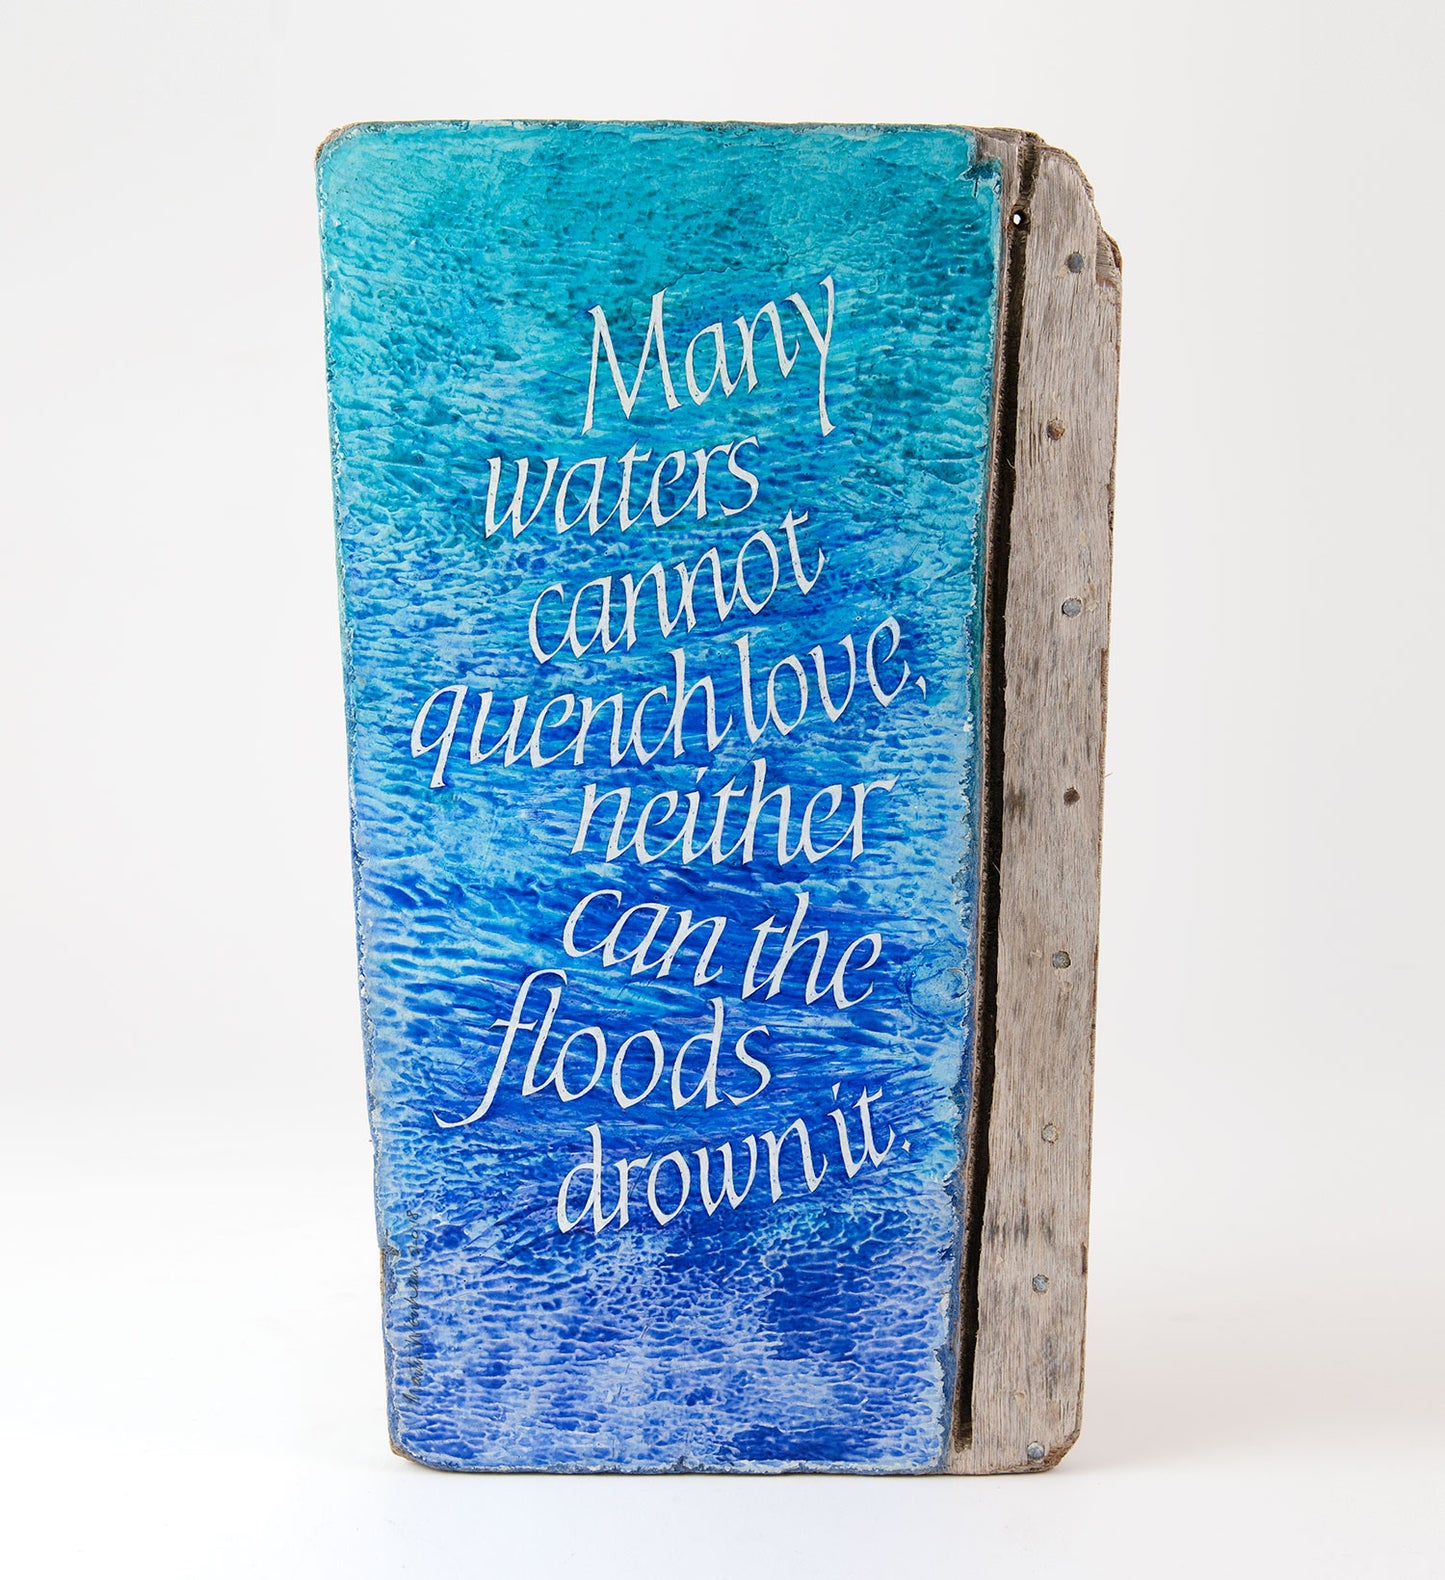 Many
waters
cannot
quench love,
neither
can the
floods
drown it.
2018